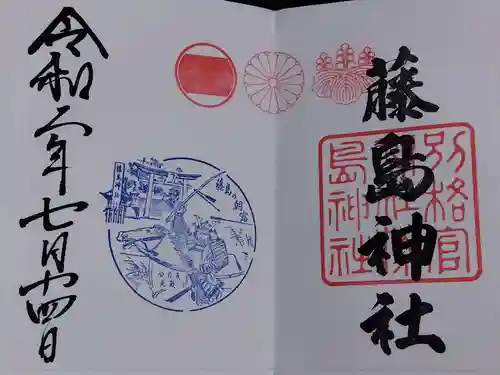 藤島神社
別格官
島神社
令和二年七月十四日
藤島神社
藤島の朝霧